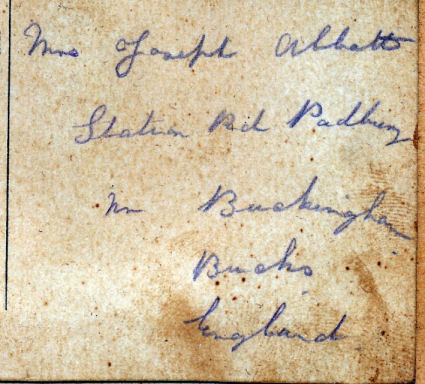 Mrs Joseph Abbott
Station Rd Padbury
Nr Buckingham
Bucks
England